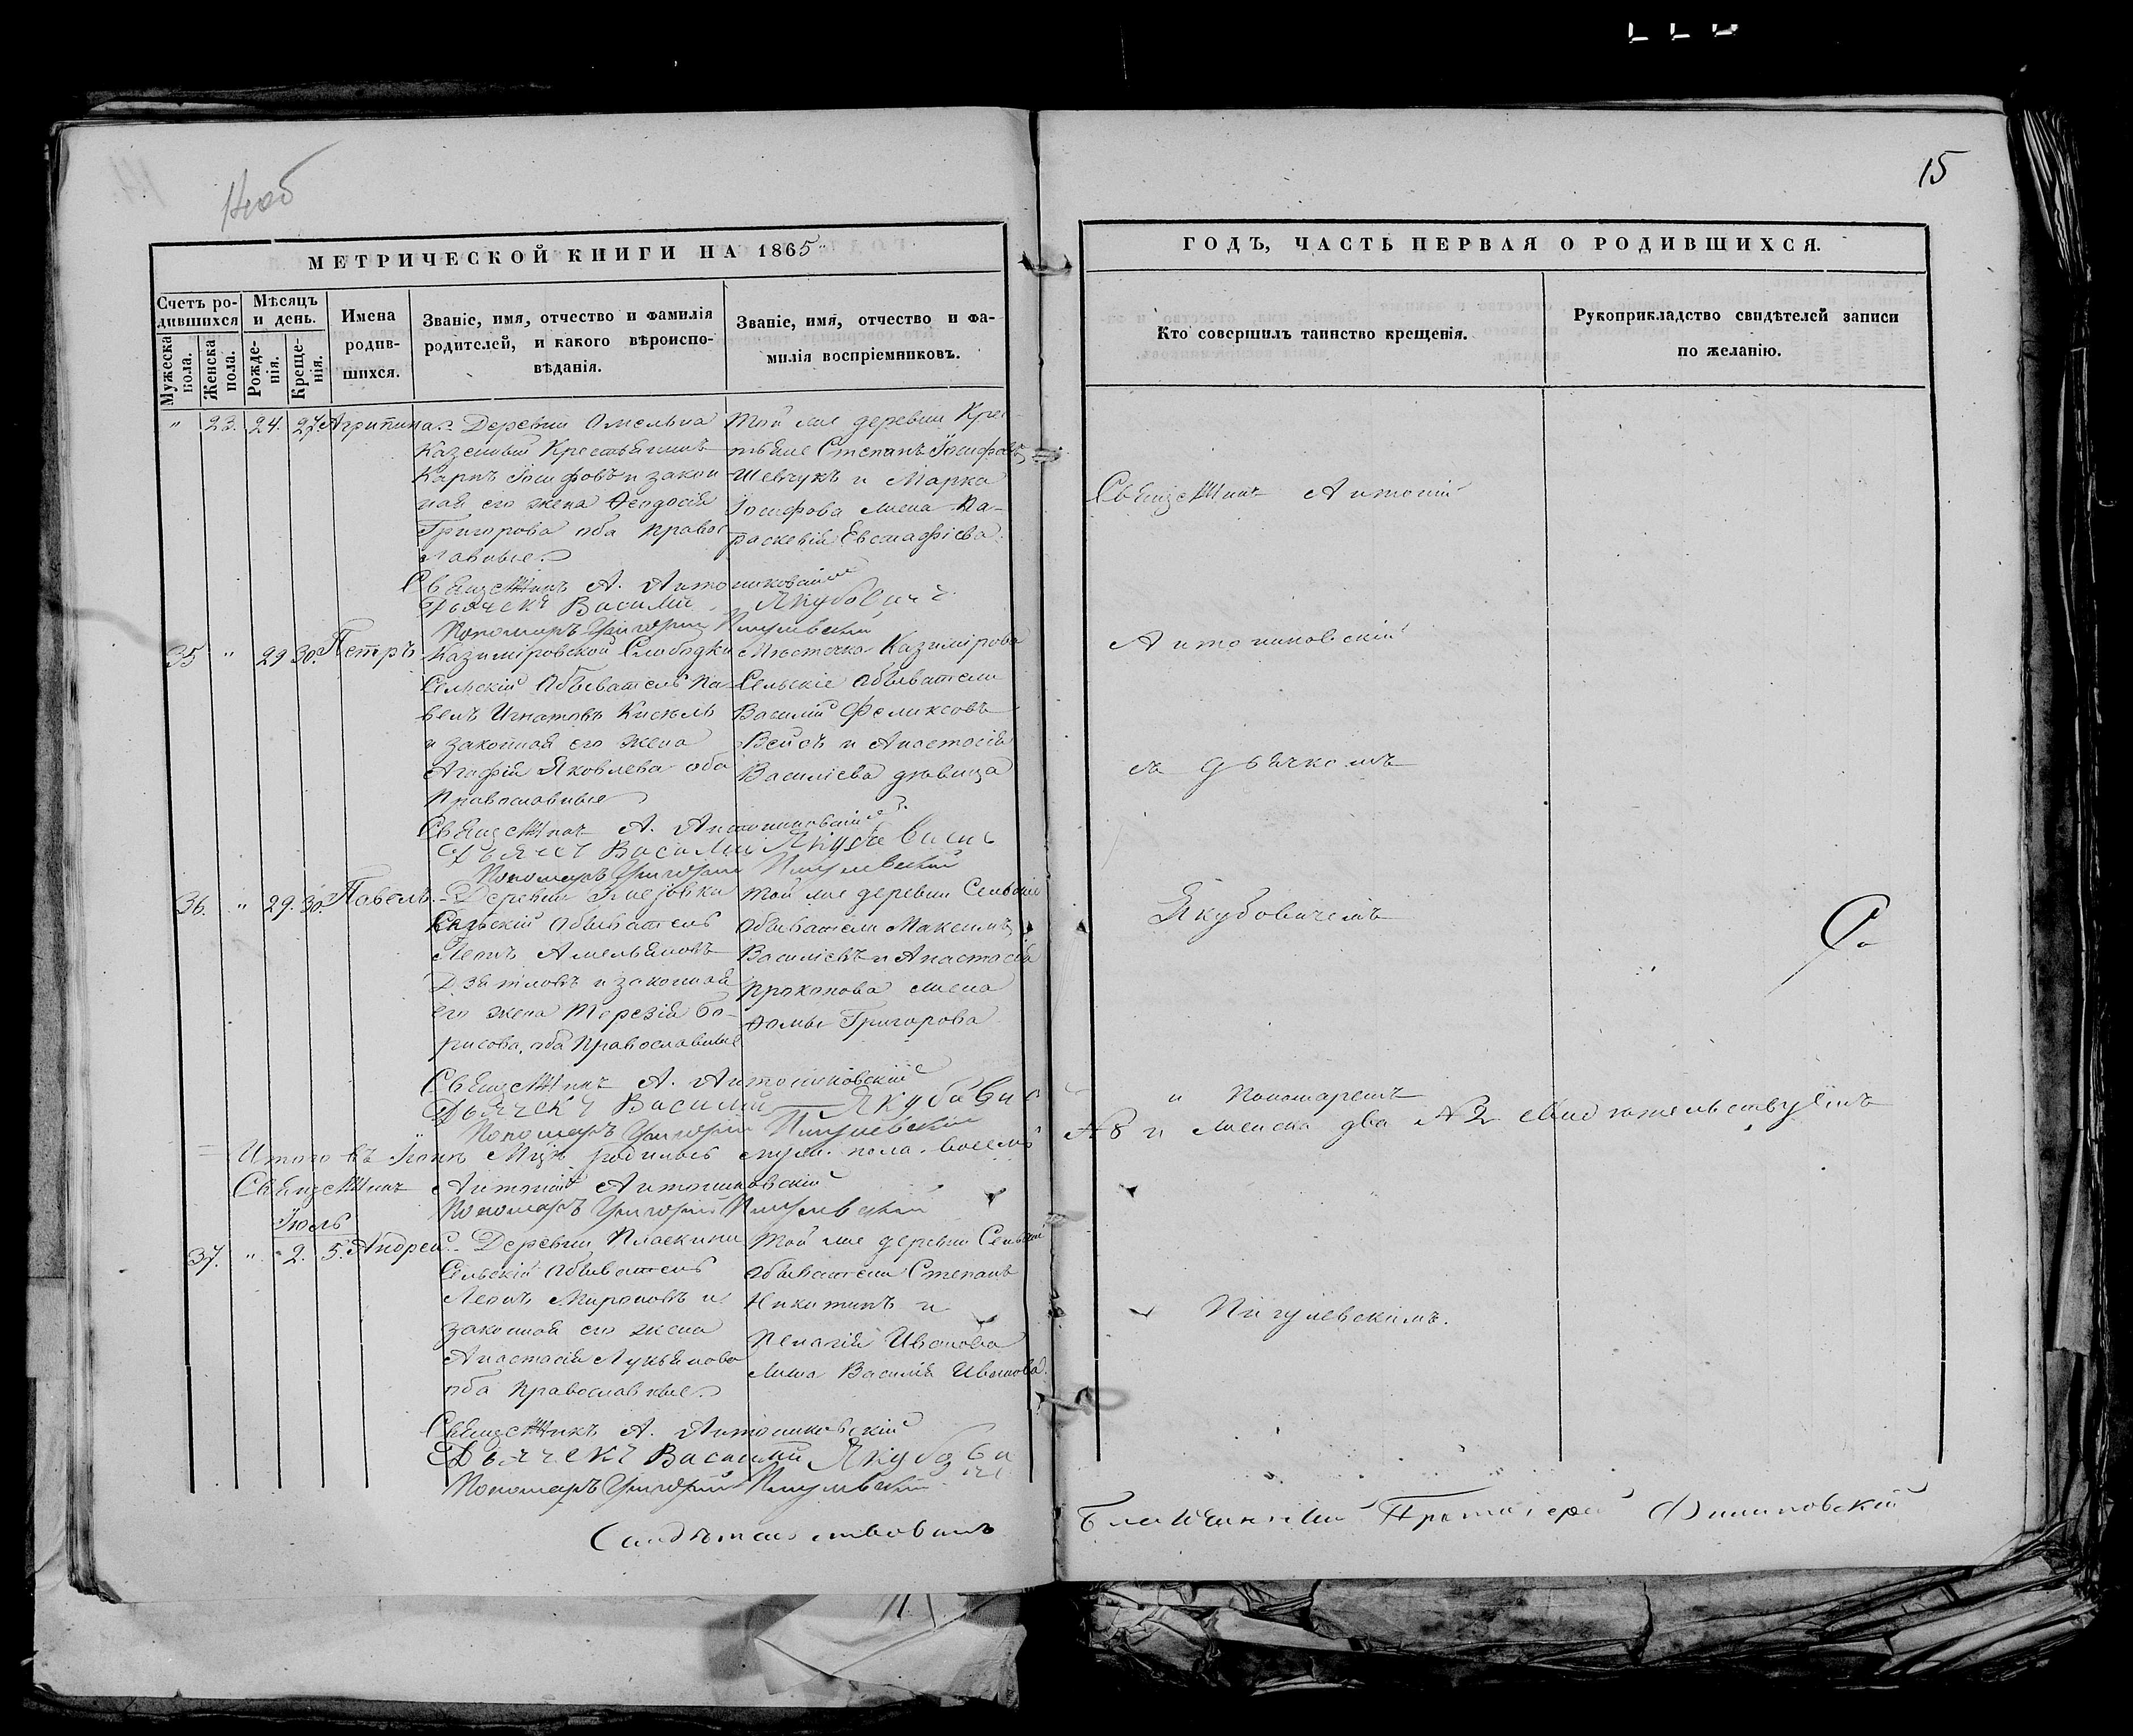 14 об
15
МЕТРИЧЕСКОЙ КНИГИ НА 1865
ГОДЪ, ЧАСТЬ ПЕРВАЯ О РОДИВШИХСЯ.
Счетъ ро-
дившихся
Мужеска
пола.
Женска
пола.
Мѣсяцъ
и день.
Рожде-
нія.
Креще-
нія.
Имена
родив-
шихся.
Званіе, имя, отчество и фамилія
родителей, и какого вѣроиспо-
вѣданія.
Званіе, имя, отчество и фа-
милія воспріемниковъ.
Кто совершилъ таинство крещенія.
Рукоприкладство свидѣтелей записи
по желанію.
" 23. 24. 27. Агрипина.
Деревни Омельна
Казенный Крестьянинъ
Карпъ Іосифовъ и закон
ная его жена Ѳеодосія
Григорова оба Правос
лавные.
Той же деревни Кре
тьяне Степанъ Іосифовъ
Шевчукъ и Марка
Іосифова жена Па-
раскевія Евстафіева.
Священникъ А. Антониковскій
Дьячекъ Василій Якубовичъ
Пономаръ Григорій Пигулевскій
35 " 29 30. Петръ
Казимировской Слободки
Сельскій Обыватель Па-
велъ Игнатовъ Кисель
и законная его жена
Агафія Яковлева оба
Православные
Мѣстечка Казимірова
Сельскіе Обыватели
Василій Феликсовъ
и Анастасія
Василіева дѣвица
Священникъ А. Антониковскій
Дьячекъ Василій Якубовичъ
Пономаръ Григорій Пигулевскій
36. " 29. 30. Павелъ.
Деревни
Сельскій Обыватель
Леонъ Амельяновъ
и законная
его жена Терезія Бо-
рисова, оба Православные
Той же деревни Сельскіе
Обыватели Максимъ
Василіевъ и Анастасія
Прокопова жена
Ѳомы Григорова
Священникъ А. Антониковскій
Дьячекъ Василій Якубович
Пономаръ Григорій Пигулевскій
Итого въ Іюнѣ Мцѣ родилось муж. пола восемь
№ 8 и женска два № 2
Священникъ Антоній Антониковскій
Пономаръ Григорій Пигулевскій
Іюль
37. " 2. 5. Андрей.
Деревни
Сельскій Обыватель
Леонъ Мироновъ и
законная его жена
Анастасія Лукьянова
оба Православные.
Той же деревни Сельскіе
Обыватели Степанъ
Никитинъ и
Пелагія Иванова
жена Василія Иванова.
Священникъ А. Антониковскій
Дьячекъ Василій Якубович
Пономаръ Григорій Пигулевскій
Священникъ Антоній
Антониковскій
съ дьячкомъ
Якубовичемъ
и Пономаремъ
Пигулевскимъ.
Свидѣтельствовалъ
Благочинный Протоіерей